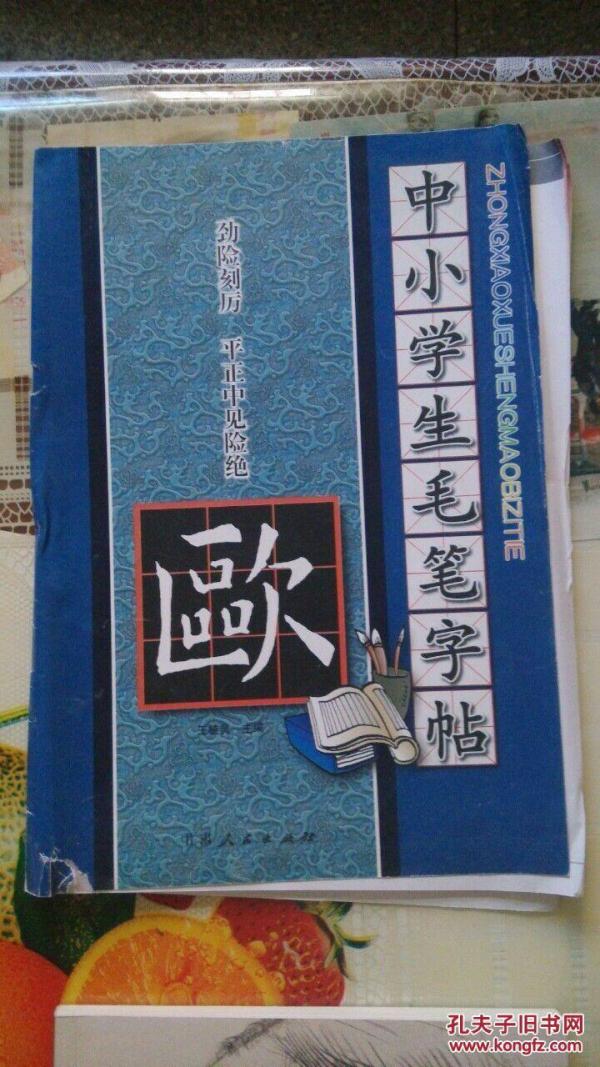 中小学生毛笔字帖
ZHONGXIAOXUESHENGMAOBIZITIE
劲险刻厉 平正中见险绝
歐
主编
人民出版社
孔夫子旧书网
www.kongfz.com